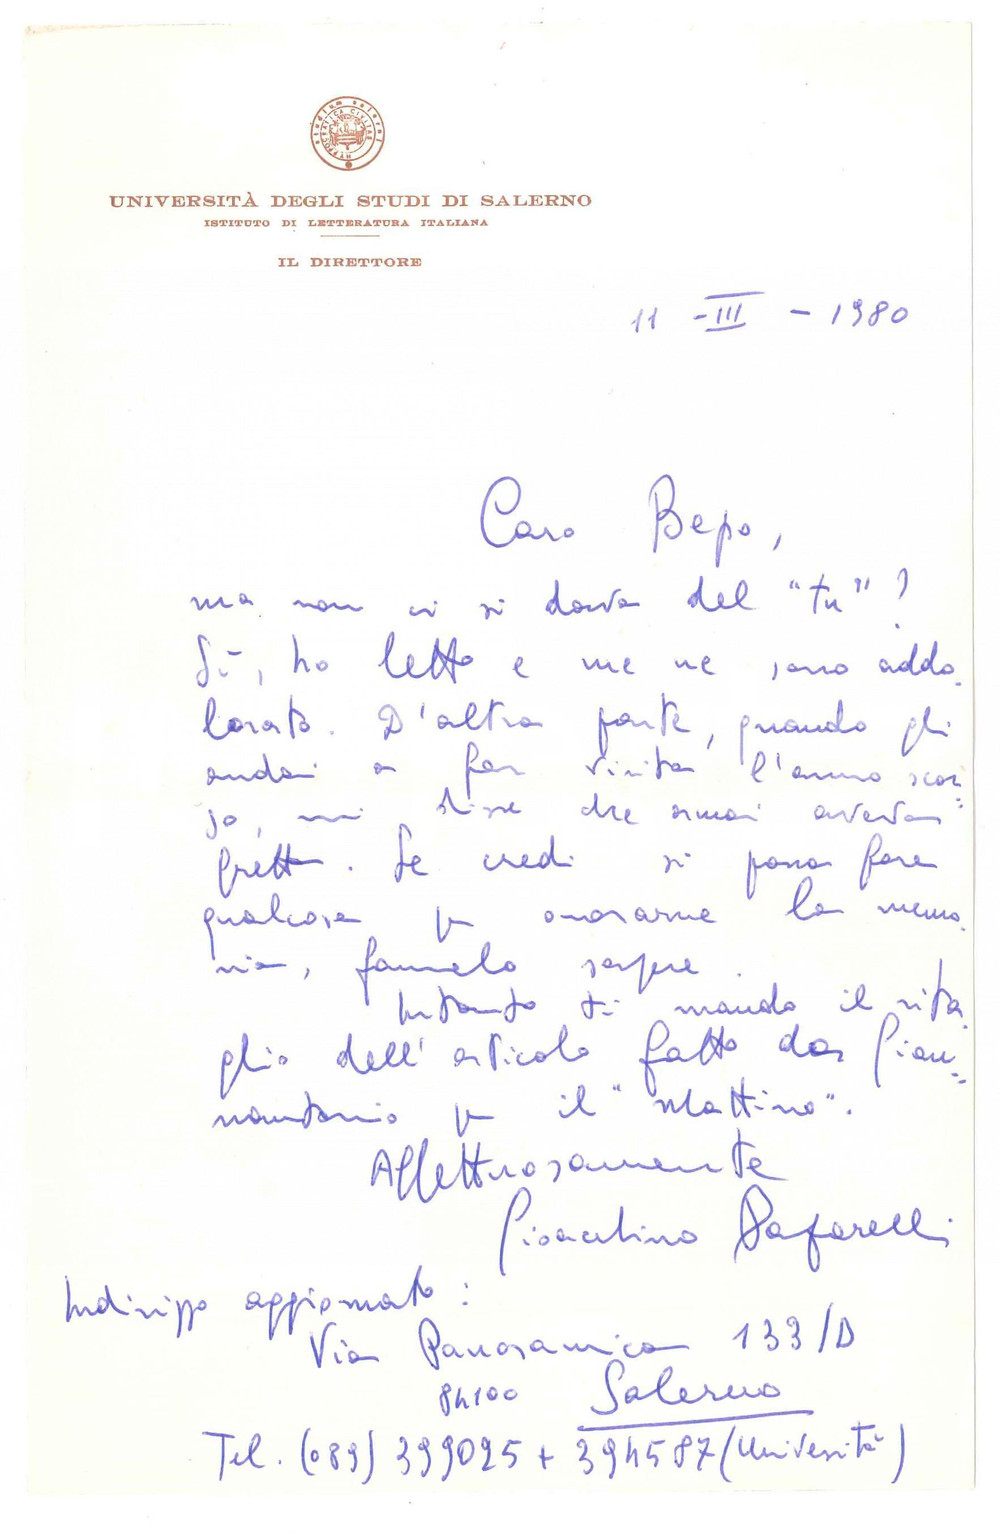 studium salerni
HYPPOCRATICA CIVITAS
UNIVERSITÀ DEGLI STUDI DI SALERNO
ISTITUTO DI LETTERATURA ITALIANA
IL DIRETTORE
11 - III - 1980
Caro Bepo,
ma non ci si dava del "tu"?
Sì, ho letto e me ne sono addo-
lorato. D'altra parte, quando gli
andai a far visita l'anno scor-
so, mi disse che ormai aveva
fretta. Se credi si possa fare
qualcosa per onorarne la memo-
ria, fammelo sapere.
Intanto ti mando il rita-
glio dell'articolo fatto da Gian-
nantonio per il "Mattino".
Affettuosamente
Gioacchino Paparelli
Indirizzo aggiornato:
Via Panoramica 133/D
84100 Salerno
Tel. (089) 399025 + 394587 (Università)